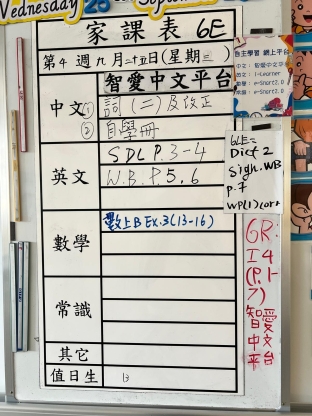 Wednesday 25
家課表 6E
第4週九月二十五日(星期三)
智愛中文平台
中文
① 詞(二)及改正
② 自學冊
英文
SDL P.3-4
W.B. P.5,6
數學
數上B Ex.3(13-16)
常識
其它
值日生
13
自主學習 網上平台
中文：智愛中文平台
英文：i-Learner
6E:
Dict 2
Sigh. WB
p.7
WP(1)corr
6R:
I4
(P.1-
7)
智愛
中文
平台